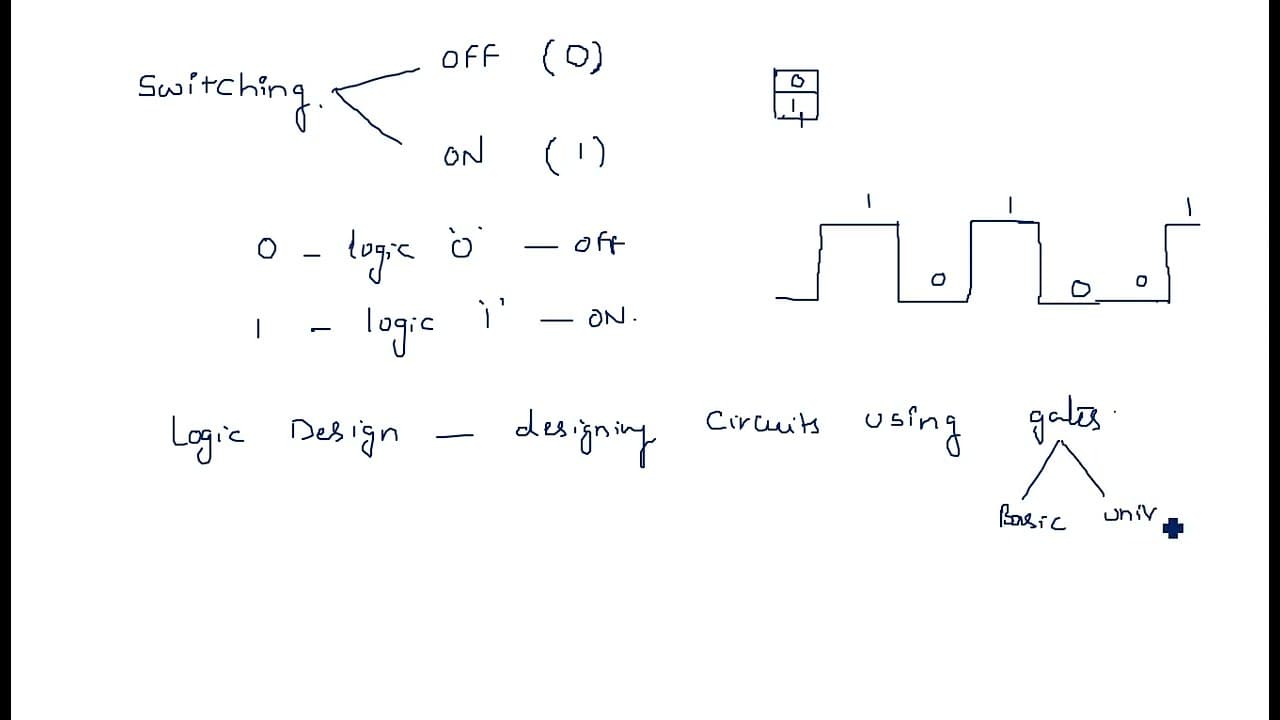 Switching.
OFF (0)
ON (1)
0
1
0 – logic '0' — OFF
1 – logic '1' — ON.
1 1 1
0 0 0
Logic Design — designing Circuits using gates.
Basic univ